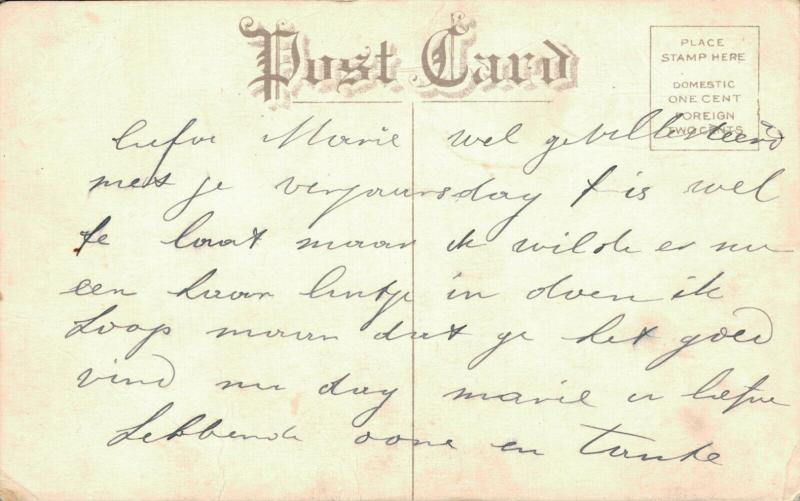 Post Card
PLACE
STAMP HERE
DOMESTIC
ONE CENT
FOREIGN
TWO CENTS
liefve Marie wel
met je verjaarsday t is wel
te laat maar ik wilde er nu
een haar lintje in doen ik
Loop maar dat ge het goed
vind nu day marie u liefve
hebbende oone en Tante